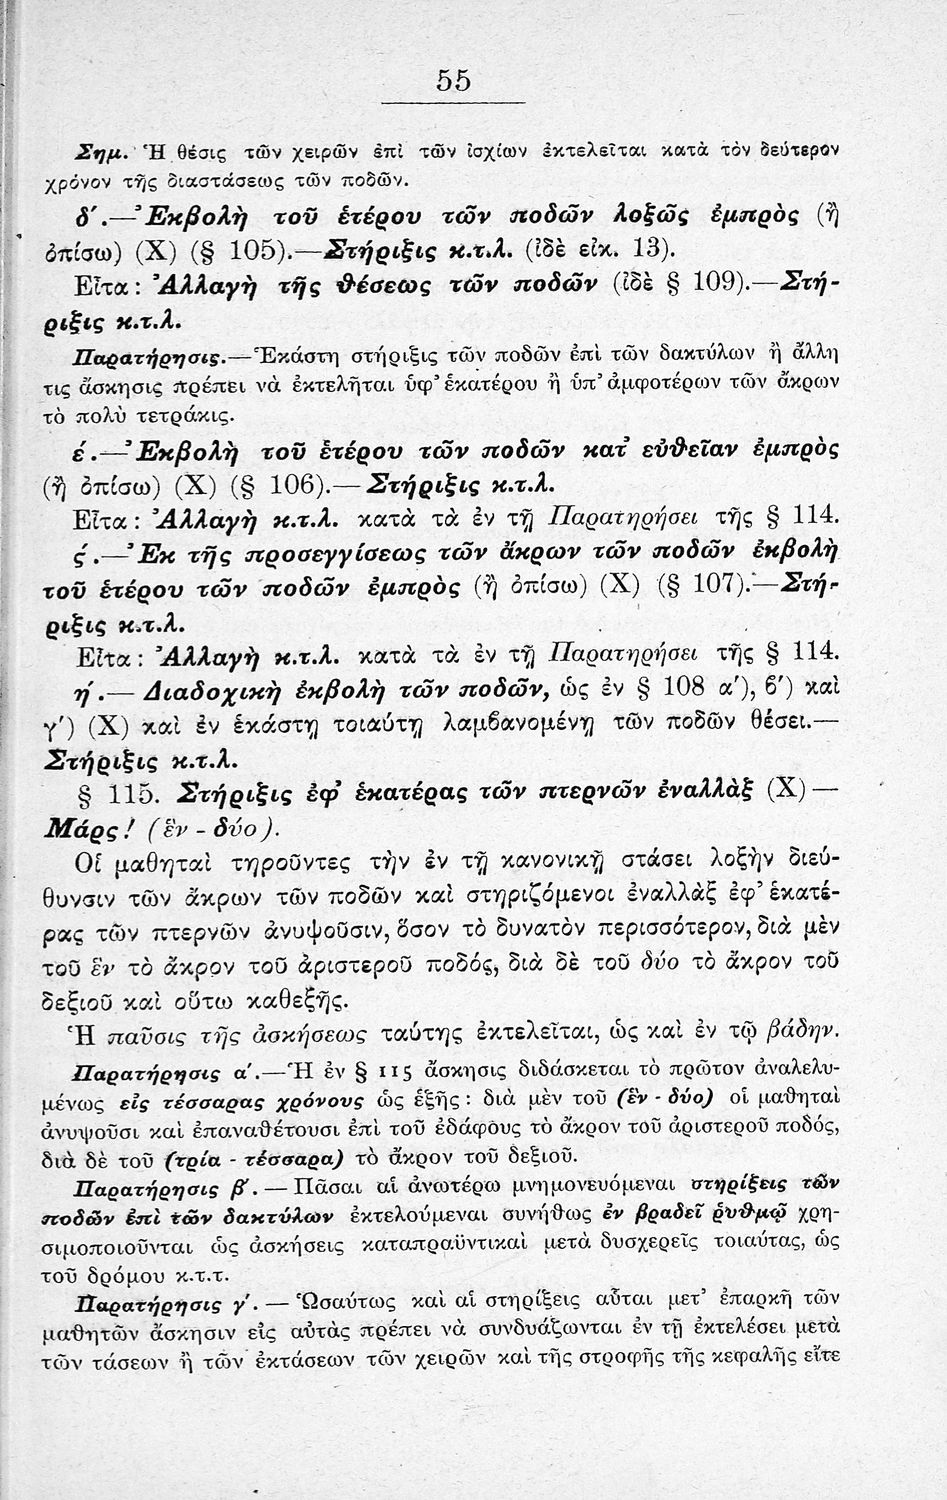 55
Σημ. Ἡ θέσις τῶν χειρῶν ἐπὶ τῶν ἰσχίων ἐκτελεῖται κατὰ τὸν δεύτερον
χρόνον τῆς διαστάσεως τῶν ποδῶν.
δ΄.—Ἐκβολὴ τοῦ ἑτέρου τῶν ποδῶν λοξῶς ἐμπρὸς (ἢ
ὀπίσω) (Χ) (§ 105).—Στήριξις κ.τ.λ. (ἰδὲ εἰκ. 13).
Εἶτα : Ἀλλαγὴ τῆς θέσεως τῶν ποδῶν (ἰδὲ § 109).—Στή-
ριξις κ.τ.λ.
Παρατήρησις.—Ἑκάστη στήριξις τῶν ποδῶν ἐπὶ τῶν δακτύλων ἢ ἄλλη
τις ἄσκησις πρέπει νὰ ἐκτελῆται ὑφ’ ἑκατέρου ἢ ὑπ’ ἀμφοτέρων τῶν ἄκρων
τὸ πολὺ τετράκις.
έ.—Ἐκβολὴ τοῦ ἑτέρου τῶν ποδῶν κατ’ εὐθεῖαν ἐμπρὸς
(ἢ ὀπίσω) (Χ) (§ 106).—Στήριξις κ.τ.λ.
Εἶτα : Ἀλλαγὴ κ.τ.λ. κατὰ τὰ ἐν τῇ Παρατηρήσει τῆς § 114.
ς΄.—Ἐκ τῆς προσεγγίσεως τῶν ἄκρων τῶν ποδῶν ἐκβολὴ
τοῦ ἑτέρου τῶν ποδῶν ἐμπρὸς (ἢ ὀπίσω) (Χ) (§ 107).—Στή-
ριξις κ.τ.λ.
Εἶτα : Ἀλλαγὴ κ.τ.λ. κατὰ τὰ ἐν τῇ Παρατηρήσει τῆς § 114.
ή.— Διαδοχικὴ ἐκβολὴ τῶν ποδῶν, ὡς ἐν § 108 α΄), ϐ΄) καὶ
γ΄) (Χ) καὶ ἐν ἑκάστῃ τοιαύτῃ λαμϐανομένῃ τῶν ποδῶν θέσει.—
Στήριξις κ.τ.λ.
§ 115. Στήριξις ἐφ’ ἑκατέρας τῶν πτερνῶν ἐναλλὰξ (Χ) —
Μάρς! (ἓν - δύο).
Οἱ μαθηταὶ τηροῦντες τὴν ἐν τῇ κανονικῇ στάσει λοξὴν διεύ-
θυνσιν τῶν ἄκρων τῶν ποδῶν καὶ στηριζόμενοι ἐναλλὰξ ἐφ’ ἑκατέ-
ρας τῶν πτερνῶν ἀνυψοῦσιν, ὅσον τὸ δυνατὸν περισσότερον, διὰ μὲν
τοῦ ἓν τὸ ἄκρον τοῦ ἀριστεροῦ ποδός, διὰ δὲ τοῦ δύο τὸ ἄκρον τοῦ
δεξιοῦ καὶ οὕτω καθεξῆς.
Ἡ παῦσις τῆς ἀσκήσεως ταύτης ἐκτελεῖται, ὡς καὶ ἐν τῷ βάδην.
Παρατήρησις α΄.—Ἡ ἐν § 115 ἄσκησις διδάσκεται τὸ πρῶτον ἀναλελυ-
μένως εἰς τέσσαρας χρόνους ὡς ἑξῆς : διὰ μὲν τοῦ (ἓν - δύο) οἱ μαθηταὶ
ἀνυψοῦσι καὶ ἐπαναθέτουσι ἐπὶ τοῦ ἐδάφους τὸ ἄκρον τοῦ ἀριστεροῦ ποδός,
διὰ δὲ τοῦ (τρία - τέσσαρα) τὸ ἄκρον τοῦ δεξιοῦ.
Παρατήρησις β΄. — Πᾶσαι αἱ ἀνωτέρω μνημονευόμεναι στηρίξεις τῶν
ποδῶν ἐπὶ τῶν δακτύλων ἐκτελούμεναι συνήθως ἐν βραδεῖ ῥυθμῷ χρη-
σιμοποιοῦνται ὡς ἀσκήσεις καταπραϋντικαὶ μετὰ δυσχερεῖς τοιαύτας, ὡς
τοῦ δρόμου κ.τ.τ.
Παρατήρησις γ΄. — Ὡσαύτως καὶ αἱ στηρίξεις αὗται μετ’ ἐπαρκῆ τῶν
μαθητῶν ἄσκησιν εἰς αὐτὰς πρέπει νὰ συνδυάζωνται ἐν τῇ ἐκτελέσει μετὰ
τῶν τάσεων ἢ τῶν ἐκτάσεων τῶν χειρῶν καὶ τῆς στροφῆς τῆς κεφαλῆς εἴτε